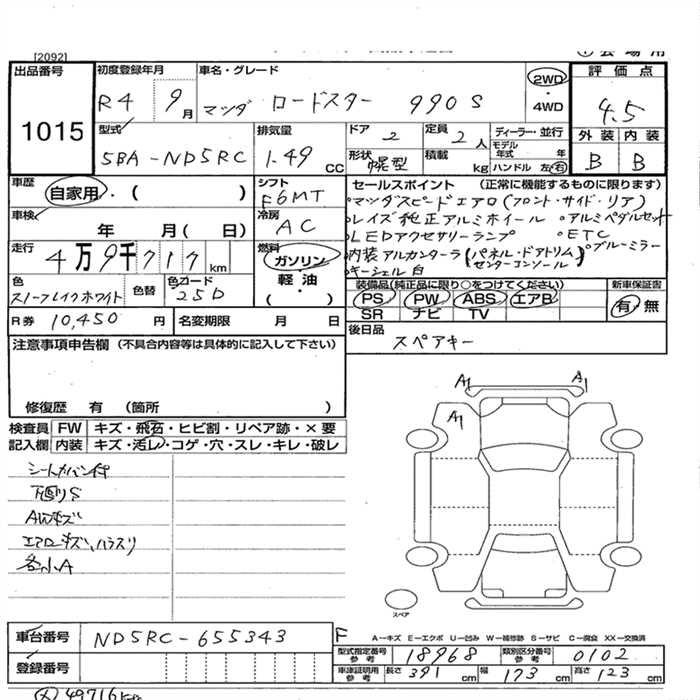 [2092]
出品番号 初度登録年月 車名・グレード 2WD ・ 4WD 評価点
1015 R4 9月 マツダ ロードスター 990S 4.5
型式 排気量 ドア 定員 ディーラー・並行 外装 内装
5BA-ND5RC 1.49 CC 2 2人 モデル年式 年 B B
形状 幌型 積載 kg ハンドル 左・右
車歴 自家用・( ) シフト F6MT
セールスポイント (正常に機能するものに限ります)
車検 年 月( 日) 冷房 AC
○マツダスピードエアロ(フロント・サイド・リア)
○レイズ純正アルミホイール ○アルミペダルセット
○LEDアクセサリーランプ ○ETC
○内装アルカンターラ(パネル・ドアトリム センターコンソール) ○ブルーミラー
○キーシェル白
走行 4万9千717km 燃料 ガソリン・軽油・( )
色 スノーフレイクホワイト 色替 色コード 25D
装備品(純正品に限り○をつけてください) 新車保証書
PS PW ABS エアB 有・無
SR ナビ TV
R券 10,450円 名変期限 月 日
後日品 スペアキー
注意事項申告欄 (不具合内容等は具体的に記入して下さい)
修復歴 有 (箇所 )
検査員 FW キズ・飛石・ヒビ割・リペア跡・×要
記入欄 内装 キズ・汚レ・コゲ・穴・スレ・キレ・破レ
下廻りS
AWキズ
各小A
A1 A1
A1
スペア
A-キズ E-エクボ U-凹み W-補修跡 S-サビ C-腐食 XX-交換済
車台番号 ND5RC-655343 F
登録番号
型式指定番号 参考 18968 類別区分番号 参考 0102
車庫証明用 参考 長さ 391 cm 幅 173 cm 高さ 123 cm